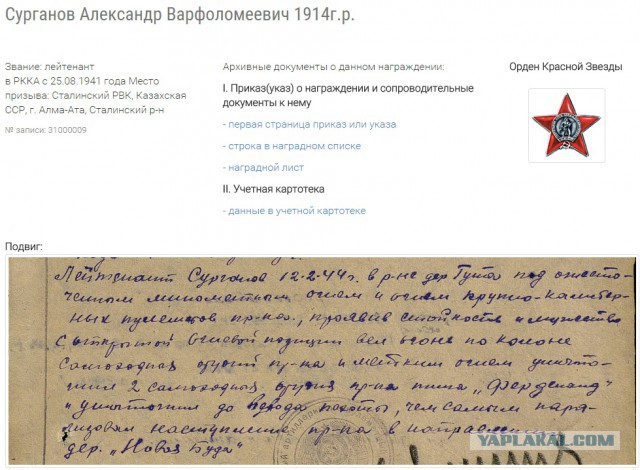 Сурганов Александр Варфоломеевич 1914г.р.
Звание: лейтенант
в РККА с 25.08.1941 года Место
призыва: Сталинский РВК, Казахская
ССР, г. Алма-Ата, Сталинский р-н
№ записи: 31000009
Архивные документы о данном награждении:
I. Приказ(указ) о награждении и сопроводительные
документы к нему
- первая страница приказ или указа
- строка в наградном списке
- наградной лист
II. Учетная картотека
- данные в учетной картотеке
Орден Красной Звезды
Подвиг:
Лейтенант Сурганов 12.2.44г. в р-не дер Гута под ожесто-
ченным минометным огнем и огнем крупно-калибер-
ных пулеметов пр-ка, проявив стойкость и мужество
с открытой огневой позиции вел огонь по колоне
самоходных орудий пр-ка и метким огнем уничто-
жил 2 самоходных орудия пр-ка типа „Фердинанд"
и уничтожил до взвода пехоты, чем самым пара-
лизовал наступление пр-ка в направлении
дер. „Новая Буда"
YAPLAKAL.COM